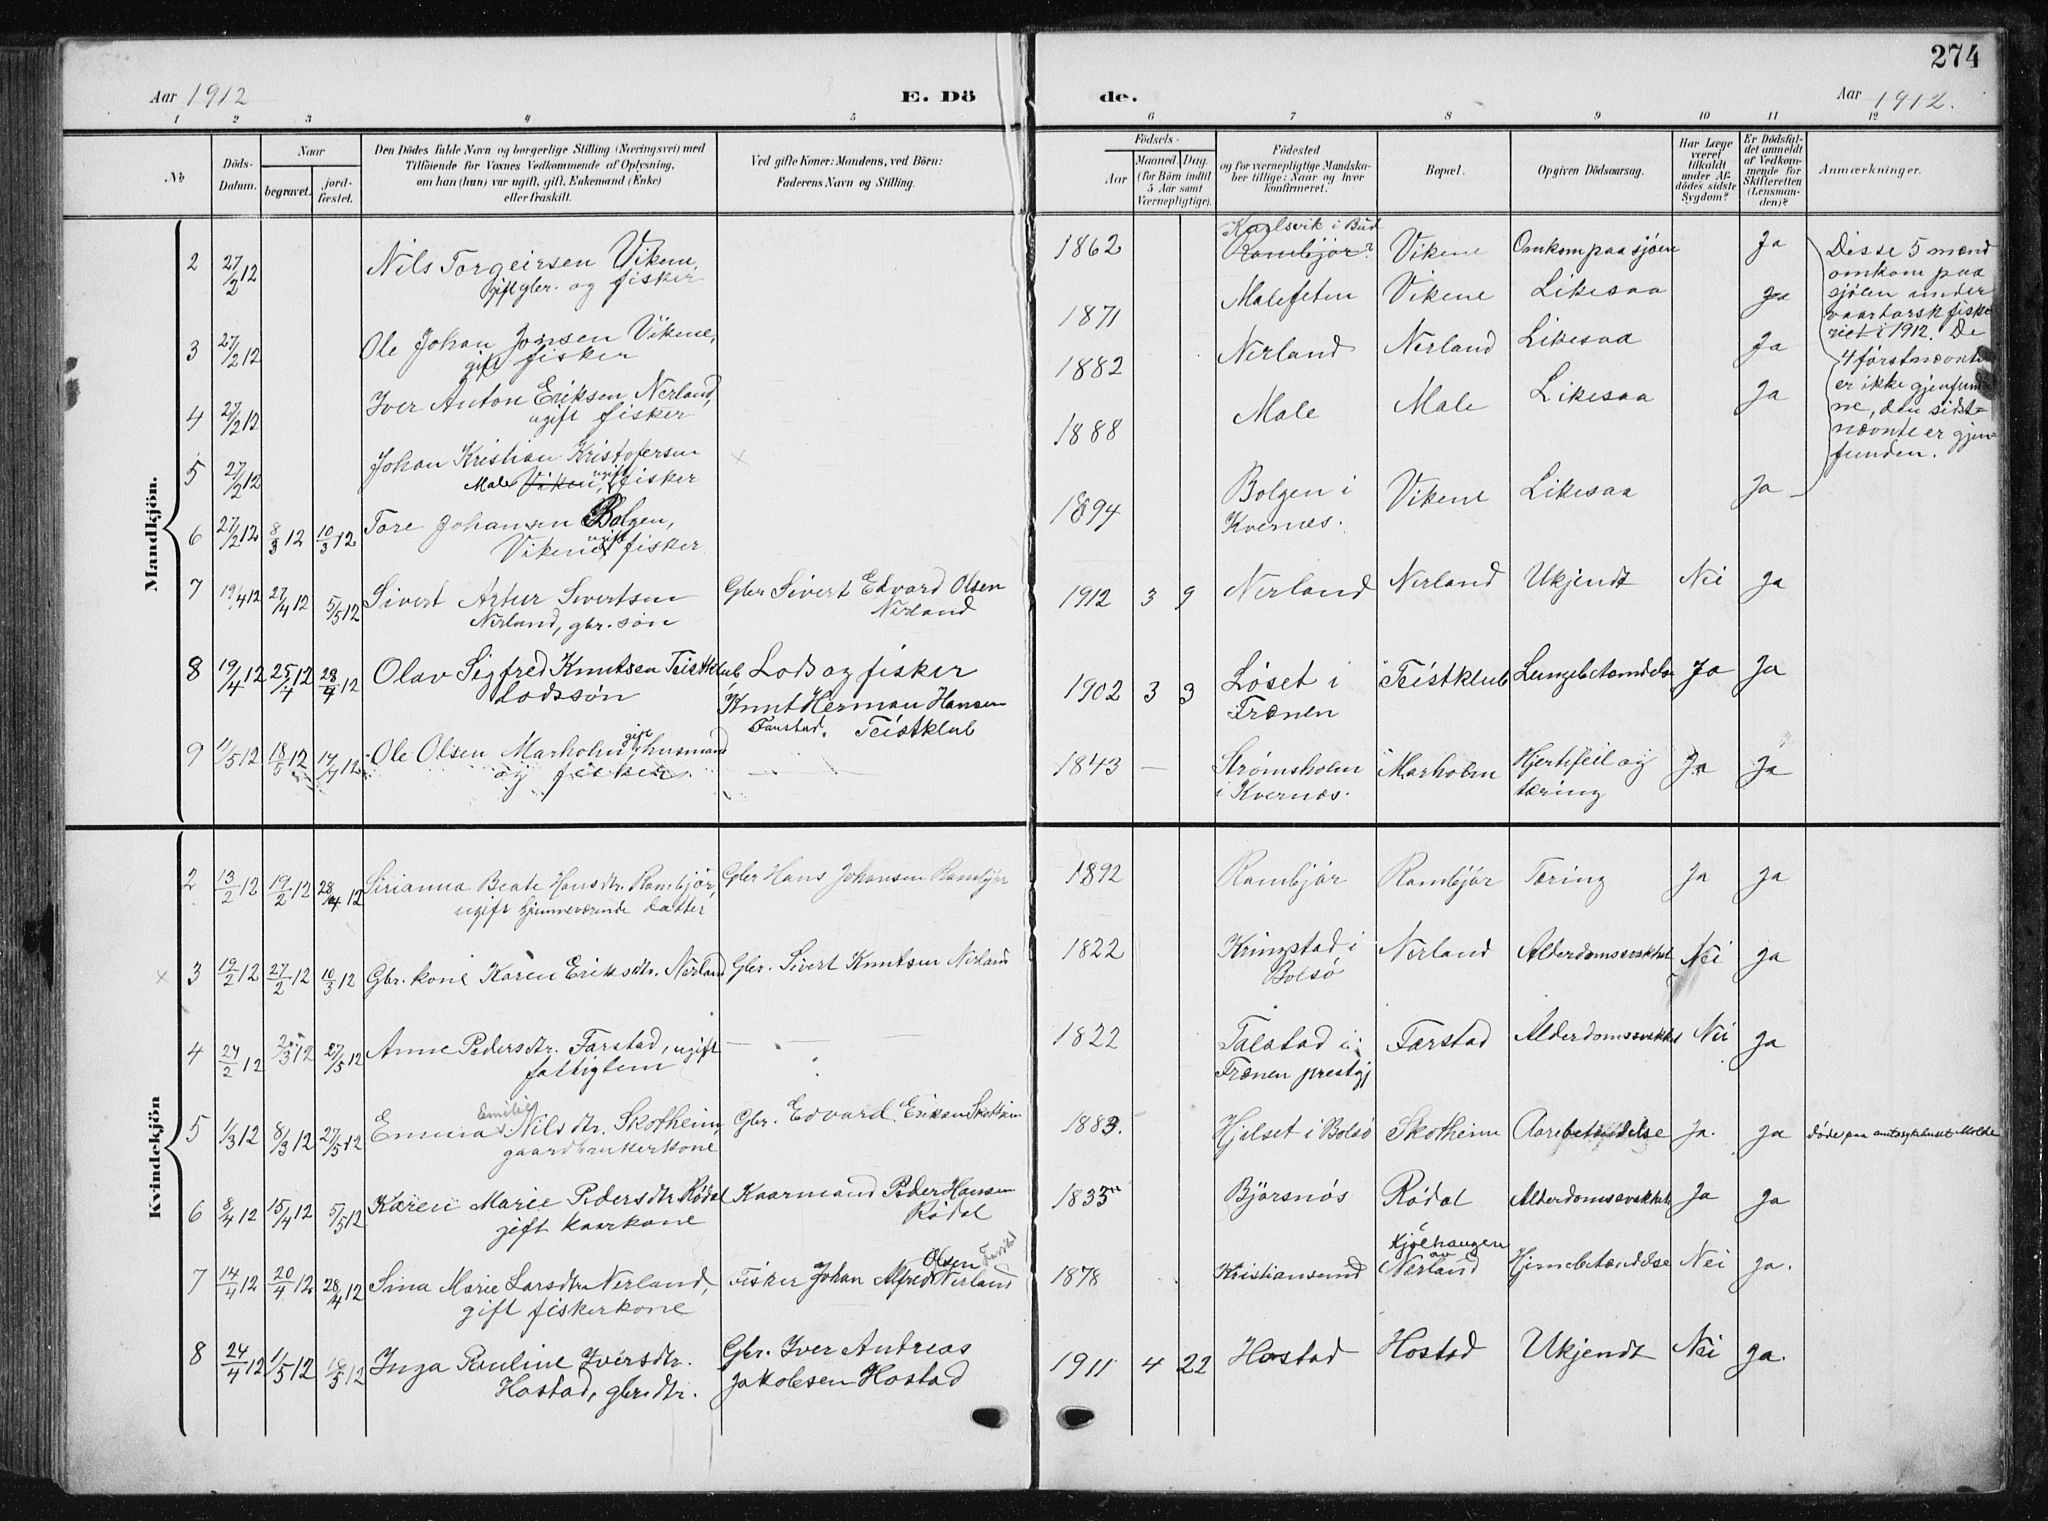 274
Aar 1912
E. Dö
de.
Aar 1912.
1 2 3 4 5 6 7 8 9 10 11 12
No
Döds-Datum.
Naar
begravet.
jord-fæstet.
Den Dödes fulde Navn og borgerlige Stilling (Næringsvei) med
Tilföiende for Voxnes Vedkommende af Oplysning,
om han (hun) var ugift, gift, Enkemand (Enke)
eller fraskilt.
Ved gifte Koner: Mandens, ved Börn:
Faderens Navn og Stilling.
Födsels-
Aar
Maaned. Dag.
(for Börn indtil
5 Aar samt
Værnepligtige).
Födested
og for værnepligtige Mandska-
ber tillige: Naar og hvor
konfirmeret.
Bopæl.
Opgiven Dödsaarsag.
Har Læge
været
tilkaldt
under Af-
dödes sidste
Sygdom?
Er Dödsfal-
det anmeldt
af Vedkom-
mende for
Skifteretten
(Lensman-
den)?
Anmærkninger.
Mandkjön.
2 27/2 12 Nils Torgeirsen Vikene, gift gbr. og fisker 1862 Karlsvik i Bud Rambjør? Vikene Omkom paa sjøen Ja
3 27/2 12 Ole Johan Jonsen Vikene, gift fisker 1871 Malefeten Vikene Likesaa Ja
4 27/2 12 Iver Anton Eriksen Nerland, ugift fisker 1882 Nerland Nerland Likesaa Ja
5 27/2 12 Johan Kristian Kristofersen Male Viken, ugift fisker 1888 Male Male Likesaa Ja
6 27/2 12 8/3 12 10/3 12 Tore Johansen Bolgen, Vikene ugift fisker 1894 Bolgen i Kvernes. Vikene Likesaa Ja
Disse 5 mænd
omkom paa
sjøen under
vaartorskfiske-
riet i 1912. De
4 førstnævnte
er ikke gjenfund-
ne, den sidst-
nævnte er gjen-
funden.
7 19/4 12 27/4 12 5/5 12 Sivert Artur Sivertsen Nerland, gbr. søn Gbr Sivert Edvard Olsen Nerland 1912 3 9 Nerland Nerland Ukjendt Nei Ja
8 19/4 12 25/4 12 28/4 12 Olav Sigfred Knutsen Teistklub lodssøn Lods og fisker Knut Herman Hansen Farstad. Teistklub 1902 3 3 Løset i Frænen Teistklub Lungebetændelse Ja Ja
9 11/5 12 18/5 12 12 Ole Olsen Marholm gift husmand og fisker. 1843 — Strømsholm i Kvernes. Marholm Hjertefeil og tæring Ja Ja
Kvindekjön
2 13/2 12 19/2 12 28/4 12 Sirianna Beate Hansdtr. Rambjør, ugift hjemmeværende datter Gbr Hans Johansen Rambjør 1892 Rambjør Rambjør Tæring Ja Ja
3 19/2 12 27/2 12 10/3 12 Gbr. kone Karen Eriksdtr. Nerland Gbr. Sivert Knutsen Nerland 1822 Kringstad i Bolsø Nerland Alderdomssvakhet Nei Ja
4 24/2 12 2/3 12 27/5 12 Anne Pedersdtr. Farstad, ugift fattiglem 1822 Talstad i Frænen prestgj Farstad Alderdomssvakhet Nei Ja
5 1/3 12 8/3 12 27/5 12 Emma Emilie Nilsdtr. Skotheim, gaardbrukerkone Gbr. Edvard Eriksen Skotheim 1883. Hjelset i Bolsø Skotheim Aarebetændelse Ja. Ja døde paa amtssykehuset Molde
6 8/4 12 15/4 12 5/5 12 Karen Marie Pedersdtr Rødal gift kaarkone Kaarmand Peder Hansen Rødal 1835 Bjørsnøs Rødal Alderdomssvakhet Ja Ja
7 14/4 12 20/4 12 28/4 12 Sina Marie Larsdtr Nerland, gift fiskerkone Fisker Johan Alfred Olsen Nerland Farstad 1878 Kristiansund Kjølhaugen av Nerland Hjernebetændelse Nei Ja.
8 24/4 12 1/5 12 12 Inga Pauline Iversdtr. Hostad, gbr. dtr. Gbr. Iver Andreas Jakobsen Hostad 1911 4 22 Hostad Hostad Ukjendt Nei Ja.